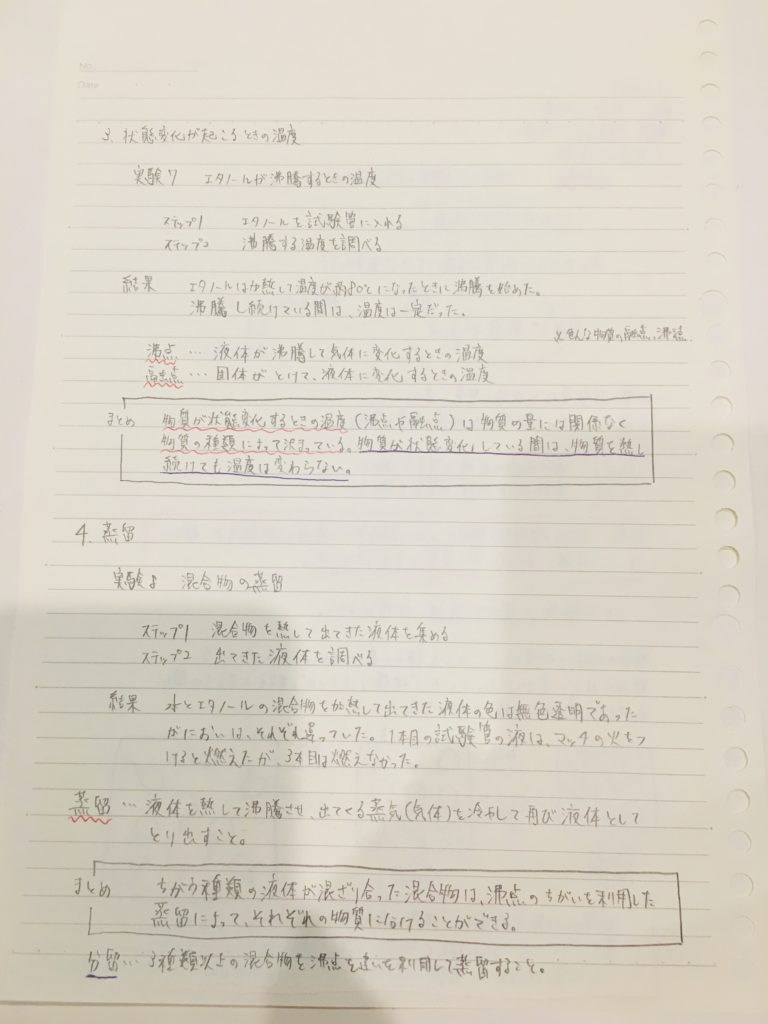 No.
Date
3. 状態変化が起こるときの温度
実験7 エタノールが沸騰するときの温度
ステップ1 エタノールを試験管に入れる
ステップ2 沸騰する温度を調べる
結果 エタノールは加熱して温度が約80℃になったときに沸騰を始めた。
沸騰し続けている間は、温度は一定だった。
色んな物質の融点、沸点
沸点…液体が沸騰して気体に変化するときの温度
融点…固体がとけて、液体に変化するときの温度
まとめ 物質が状態変化するときの温度(沸点や融点)は物質の量には関係なく
物質の種類によって決まっている。物質が状態変化している間は、物質を熱し
続けても温度は変わらない。
4. 蒸留
実験8 混合物の蒸留
ステップ1 混合物を熱して出てきた液体を集める
ステップ2 出てきた液体を調べる
結果 水とエタノールの混合物を加熱して出てきた液体の色は無色透明であった
がにおいは、それぞれ違っていた。1本目の試験管の液は、マッチの火をつ
けると燃えたが、3本目は燃えなかった。
蒸留…液体を熱して沸騰させ、出てくる蒸気(気体)を冷やして再び液体として
とり出すこと。
まとめ ちがう種類の液体が混ざり合った混合物は、沸点のちがいを利用した
蒸留によって、それぞれの物質に分けることができる。
分留…3種類以上の混合物を沸点を違いを利用して蒸留すること。